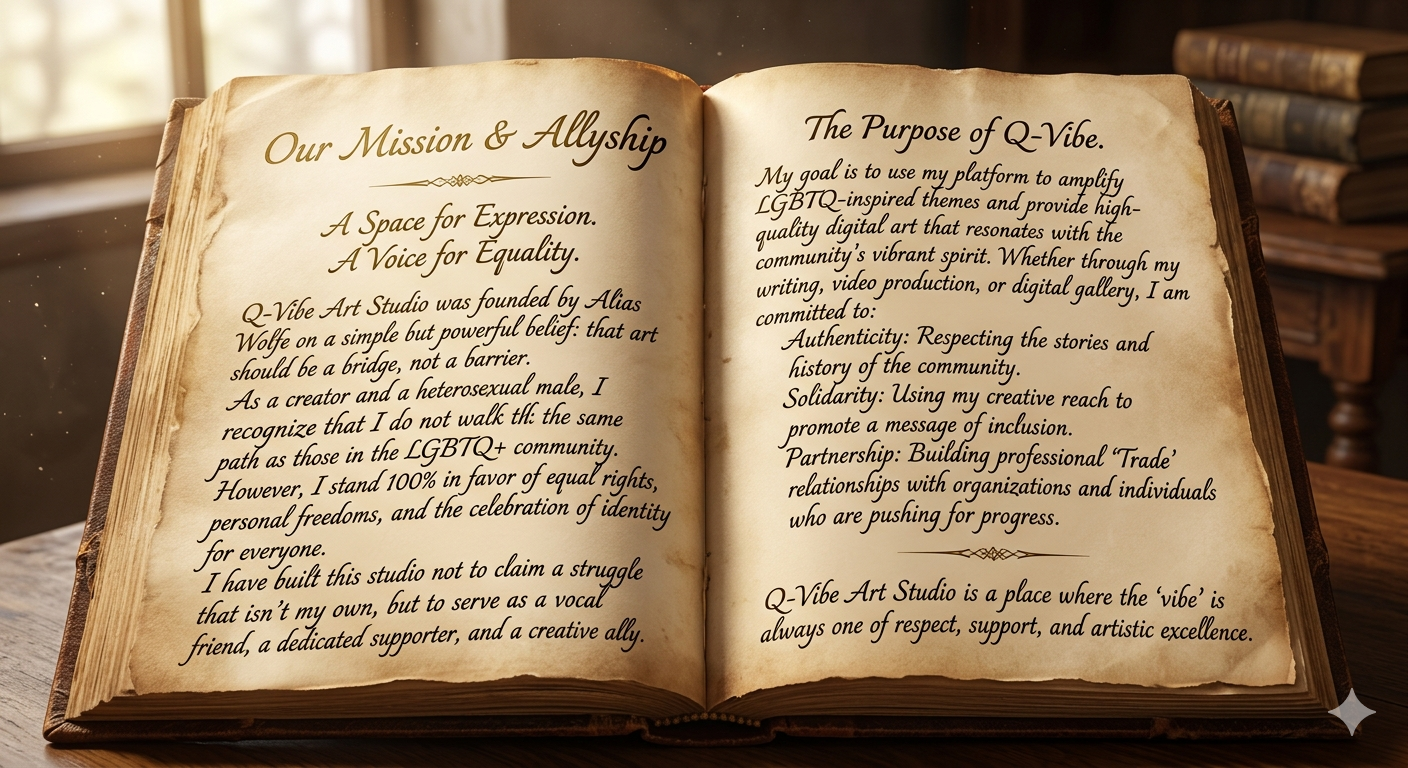 Our Mission & Allyship
A Space for Expression.
A Voice for Equality.
Q-Vibe Art Studio was founded by Alias
Wolfe on a simple but powerful belief: that art
should be a bridge, not a barrier.
As a creator and a heterosexual male, I
recognize that I do not walk the same
path as those in the LGBTQ+ community.
However, I stand 100% in favor of equal rights,
personal freedoms, and the celebration of identity
for everyone.
I have built this studio not to claim a struggle
that isn't my own, but to serve as a vocal
friend, a dedicated supporter, and a creative ally.
The Purpose of Q-Vibe.
My goal is to use my platform to amplify
LGBTQ-inspired themes and provide high-
quality digital art that resonates with the
community's vibrant spirit. Whether through my
writing, video production, or digital gallery, I am
committed to:
Authenticity: Respecting the stories and
history of the community.
Solidarity: Using my creative reach to
promote a message of inclusion.
Partnership: Building professional 'Trade'
relationships with organizations and individuals
who are pushing for progress.
Q-Vibe Art Studio is a place where the 'vibe' is
always one of respect, support, and artistic excellence.